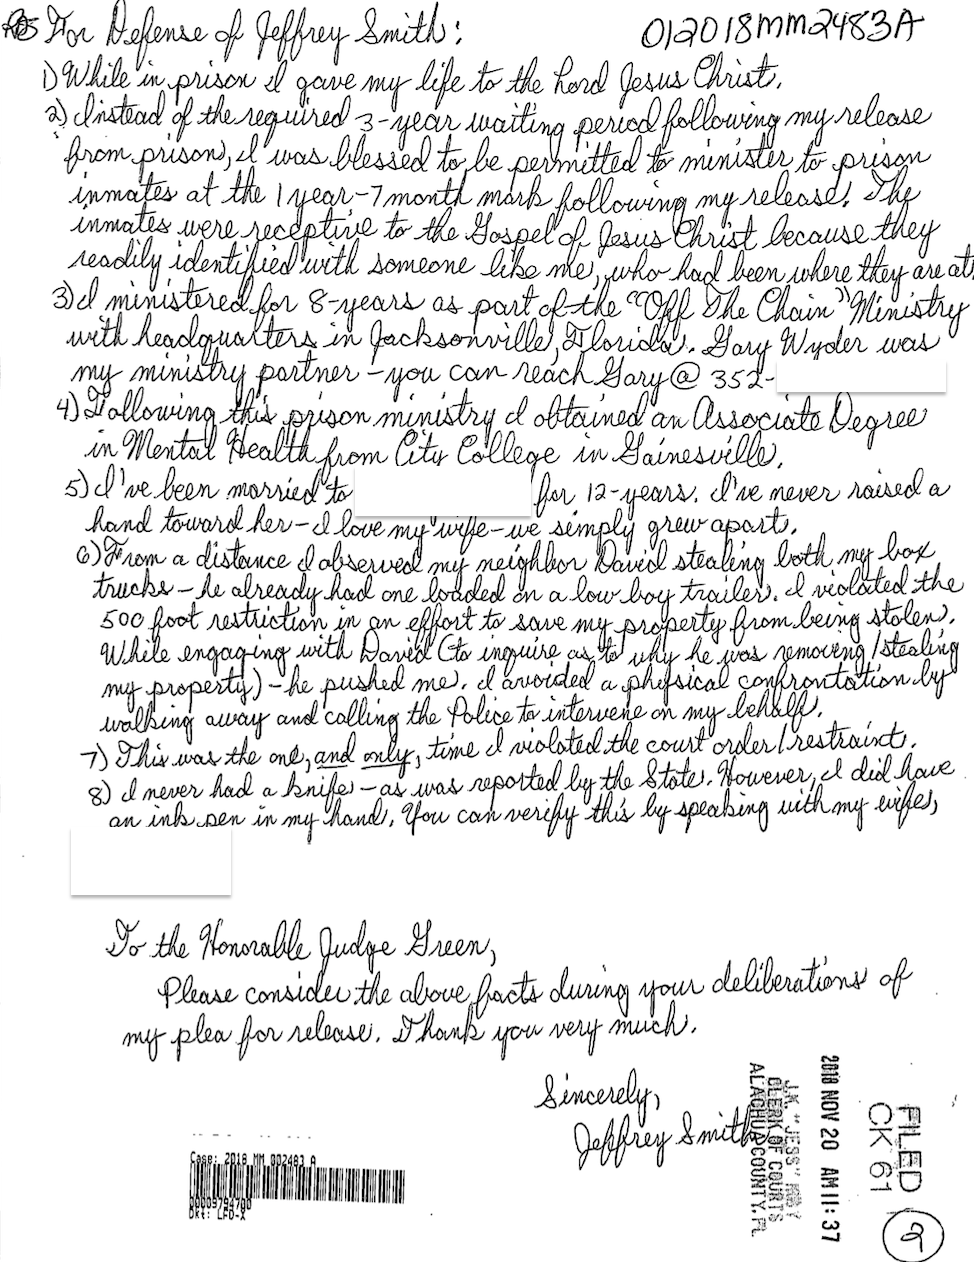 For Defense of Jeffrey Smith:
012018mm2483A
1) While in prison I gave my life to the Lord Jesus Christ.
2) Instead of the required 3-year waiting period following my release
from prison, I was blessed to be permitted to minister to prison
inmates at the 1 year-7 month mark following my release. The
inmates were receptive to the Gospel of Jesus Christ because they
readily identified with someone like me, who had been where they are at.
3) I ministered for 8-years as part of the "Off The Chain" Ministry
with headquarters in Jacksonville, Florida. Gary Wyder was
my ministry partner - you can reach Gary @ 352-
4) Following this prison ministry I obtained an Associate Degree
in Mental Health from City College in Gainesville.
5) I've been married to for 12-years. I've never raised a
hand toward her - I love my wife - we simply grew apart.
6) From a distance I observed my neighbor David stealing both my box
trucks - he already had one loaded on a low boy trailer. I violated the
500 foot restriction in an effort to save my property from being stolen.
While engaging with David (to inquire as to why he was removing/stealing
my property) - he pushed me. I avoided a physical confrontation by
walking away and calling the Police to intervene on my behalf.
7) This was the one, and only, time I violated the court order/restraint.
8) I never had a knife - as was reported by the State. However, I did have
an ink pen in my hand. You can verify this by speaking with my wife,
To the Honorable Judge Green,
Please consider the above facts during your deliberations of
my plea for release. Thank you very much.
Sincerely,
Jeffrey Smith
Case: 2018 MM 002483 A
00009794700
Dkt: LFD-X
J.K. "JESS"
CLERK OF COURTS
ALACHUA COUNTY, FL
2018 NOV 20 AM 11:37
FILED
CK 61
2